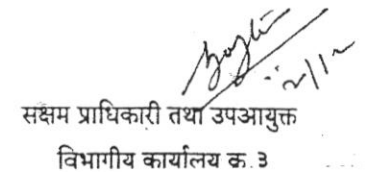 २/१२
सक्षम प्राधिकारी तथा उपआयुक्त
विभागीय कार्यालय क्र.३